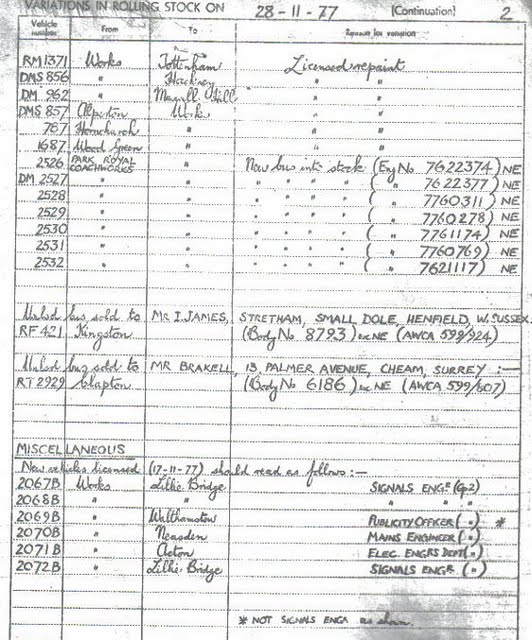 VARIATIONS IN ROLLING STOCK ON 28-11-77 (Continuation) 2
Vehicle number From To Reason for variation
RM1371 Works Tottenham Licensed repaint
DMS 856 " Hackney " "
DM 962 " Muswell Hill " "
DMS 857 Alperton Works " "
787 Hornchurch " " "
1687 Wood Green " " "
2526 PARK ROYAL COACHWORKS " New bus into stock (Eng No 7622374) NE
DM 2527 " " " " " " ( " 7622377) NE
2528 " " " " " " ( " 7760311) NE
2529 " " " " " " ( " 7760278) NE
2530 " " " " " " ( " 7761174) NE
2531 " " " " " " ( " 7760769) NE
2532 " " " " " " ( " 7621117) NE
Unlsd bus sold to MR I. JAMES, STRETHAM, SMALL DOLE, HENFIELD, W. SUSSEX
RF 421 Kingston (Body No 8793) ex NE (AWCA 599/924)
Unlsd bus sold to MR BRAKELL, 13, PALMER AVENUE, CHEAM, SURREY :—
RT 2929 Clapton (Body No 6186) ex NE (AWCA 599/507)
MISCELLANEOUS
New vehicles licensed (17-11-77) should read as follows:—
2067B Works Lillie Bridge SIGNALS ENGR (Gp2)
2068B " " " "
2069B " Walthamstow PUBLICITY OFFICER ( " ) *
2070B " Neasden MAINS ENGINEER ( " )
2071B " Acton ELEC. ENGRS DEPT ( " )
2072B " Lillie Bridge SIGNALS ENGR. ( " )
* NOT SIGNALS ENGR as shown.